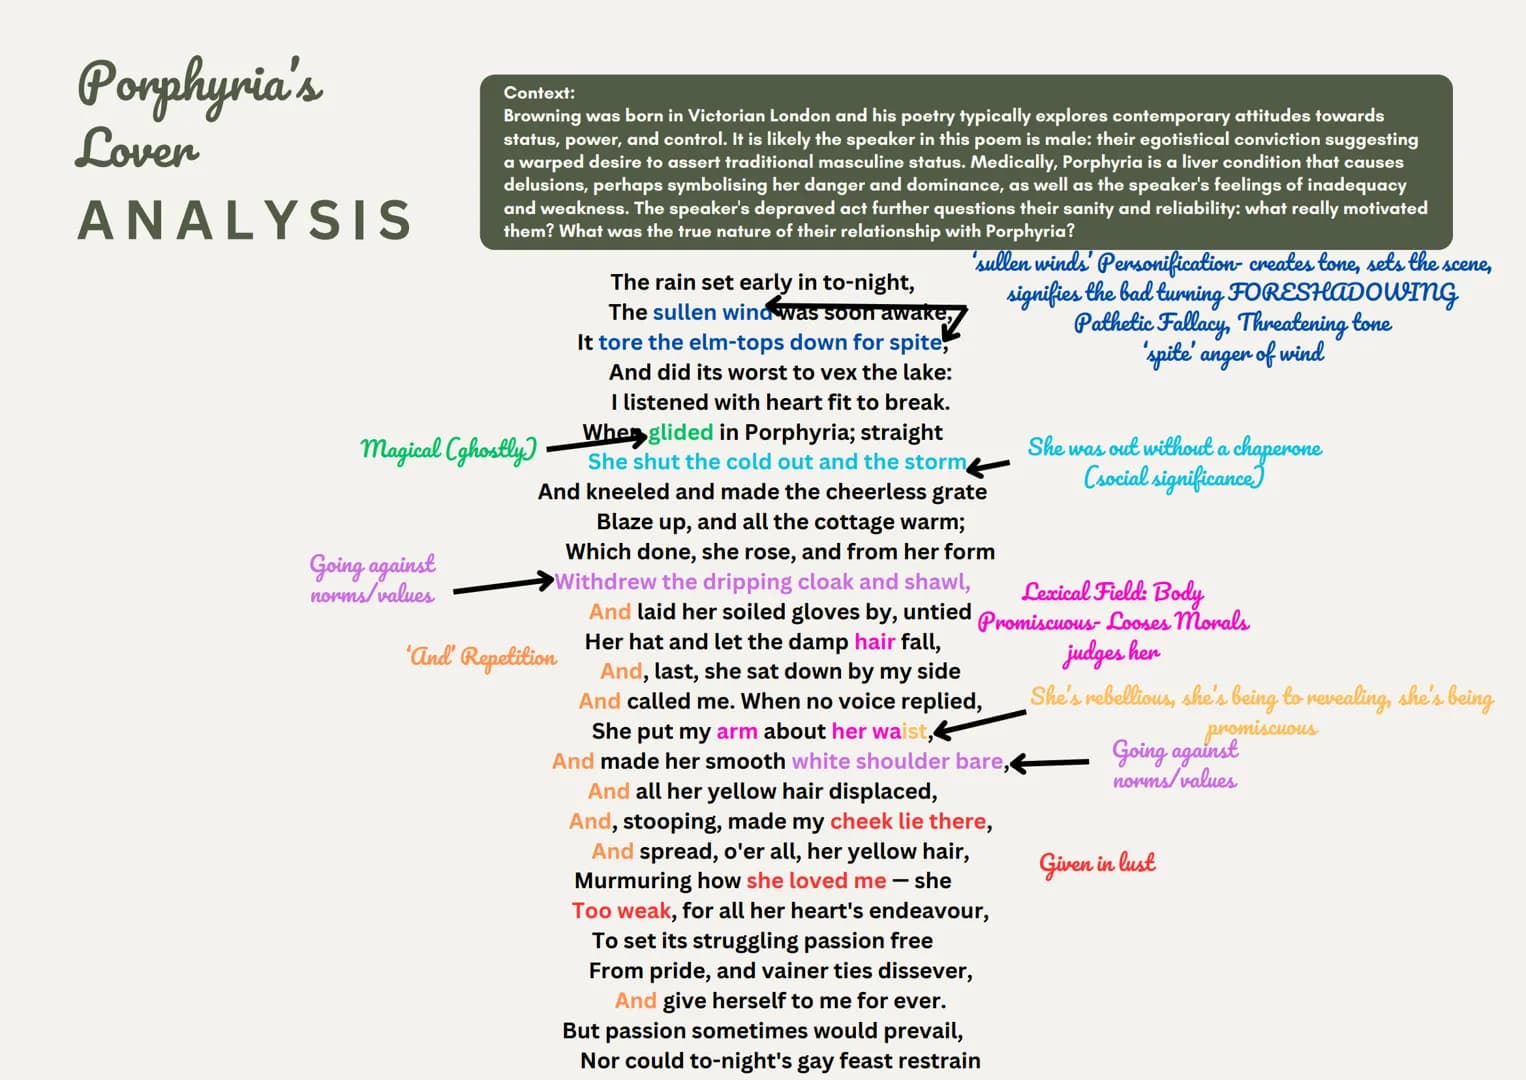 Porphyria's
Lover
ANALYSIS
Context:
Browning was born in Victorian London and his poetry typically explores contemporary attitudes towards
status, power, and control. It is likely the speaker in this poem is male: their egotistical conviction suggesting
a warped desire to assert traditional masculine status. Medically, Porphyria is a liver condition that causes
delusions, perhaps symbolising her danger and dominance, as well as the speaker's feelings of inadequacy
and weakness. The speaker's depraved act further questions their sanity and reliability: what really motivated
them? What was the true nature of their relationship with Porphyria?
'sullen winds' Personification- creates tone, sets the scene,
signifies the bad turning FORESHADOWING
Pathetic Fallacy, Threatening tone
'spite' anger of wind
The rain set early in to-night,
The sullen wind was soon awake,
It tore the elm-tops down for spite,
And did its worst to vex the lake:
I listened with heart fit to break.
When glided in Porphyria; straight
Magical (ghostly)
She shut the cold out and the storm,
She was out without a chaperone
(social significance)
And kneeled and made the cheerless grate
Blaze up, and all the cottage warm;
Which done, she rose, and from her form
Going against
norms/values
Withdrew the dripping cloak and shawl,
And laid her soiled gloves by, untied
Lexical Field: Body
Promiscuous- Looses Morals
judges her
Her hat and let the damp hair fall,
'And' Repetition
And, last, she sat down by my side
And called me. When no voice replied,
She's rebellious, she's being to revealing, she's being
promiscuous
She put my arm about her waist,
And made her smooth white shoulder bare,
Going against
norms/values
And all her yellow hair displaced,
And, stooping, made my cheek lie there,
And spread, o'er all, her yellow hair,
Given in lust
Murmuring how she loved me — she
Too weak, for all her heart's endeavour,
To set its struggling passion free
From pride, and vainer ties dissever,
And give herself to me for ever.
But passion sometimes would prevail,
Nor could to-night's gay feast restrain